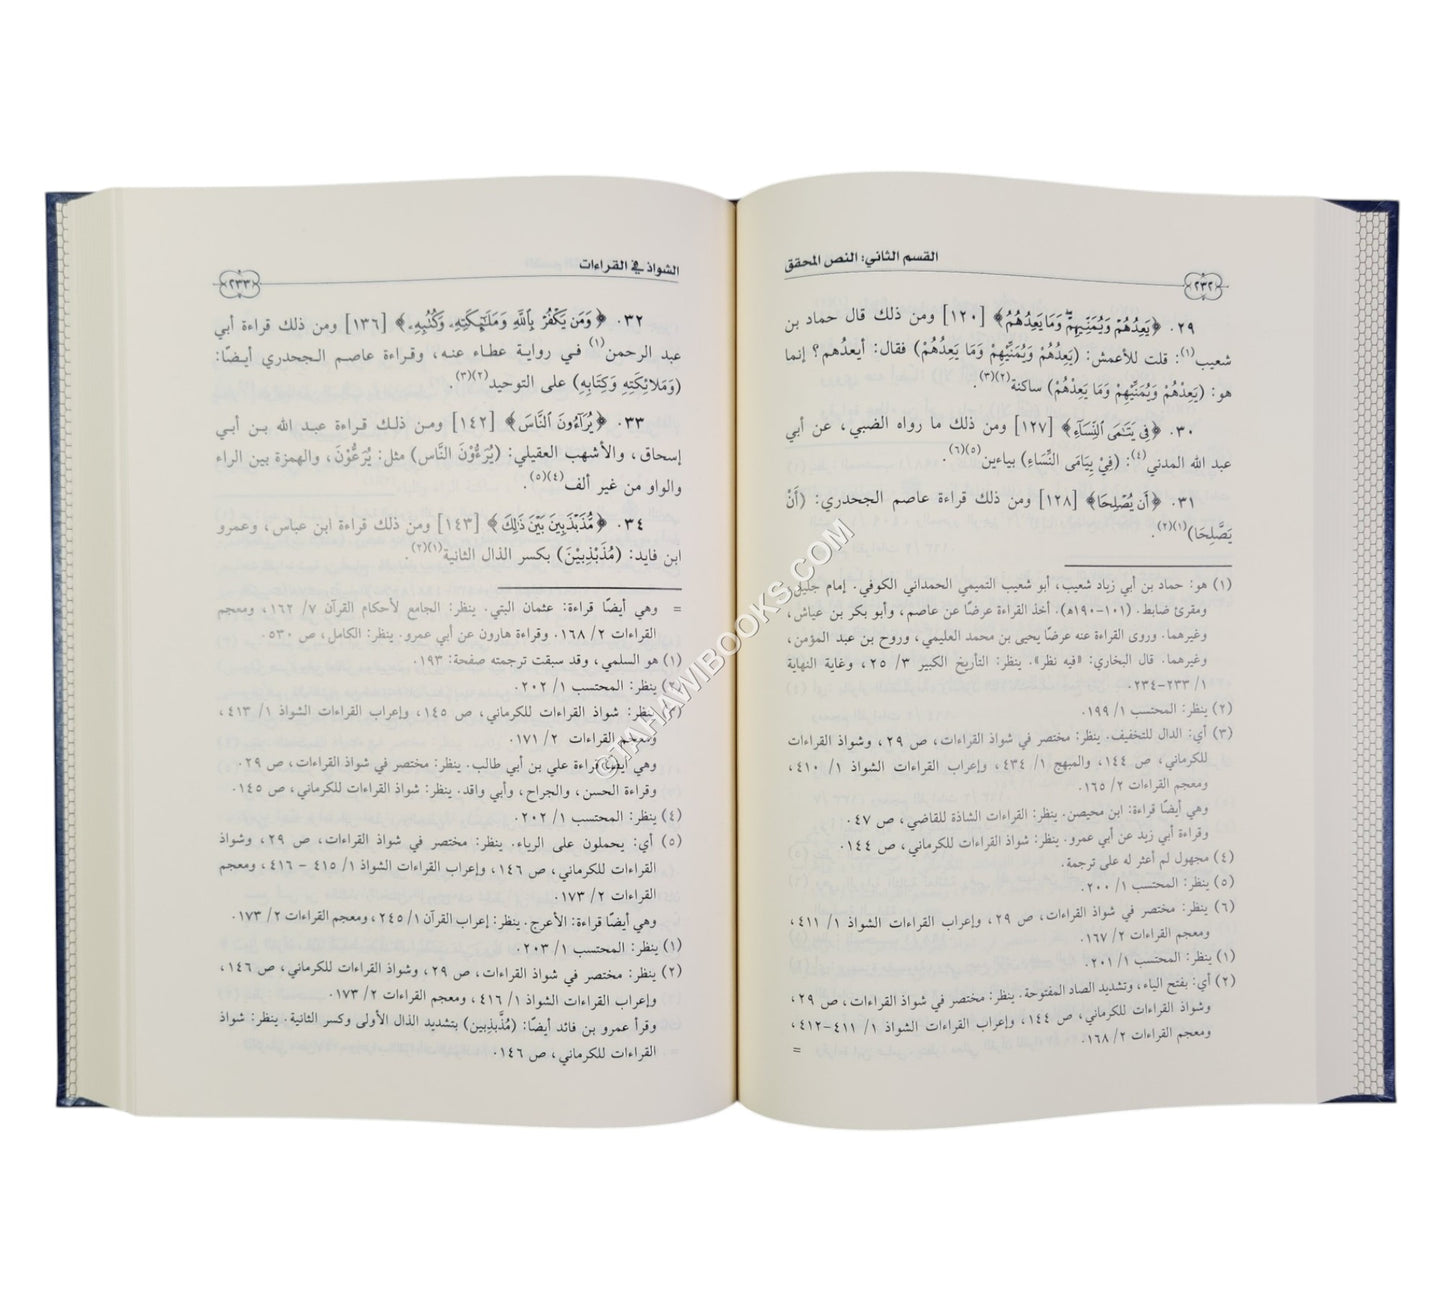 القسم الثاني: النص المحقق
٢٣٢
٢٩. ﴿يَعِدُهُمْ وَيُمَنِّيهِمْ وَمَا يَعِدُهُمُ﴾ [١٢٠] ومن ذلك قال حماد بن
شعيب(١): قلت للأعمش: (يَعِدُهُمْ وَيُمَنِّيْهِمْ وَمَا يَعِدُهُمْ) فقال: أيعدُهم؟ إنما
هو: (يَعِدْهُمْ وَيُمَنِّيْهِمْ وَمَا يَعِدْهُمْ) ساكنة(٢)(٣).
٣٠. ﴿فِي يَتَامَى النِّسَاءِ﴾ [١٢٧] ومن ذلك ما رواه الضبي، عن أبي
عبد الله المدني(٤): (فِيْ يِيَامَى النِّسَاءِ) بياءين(٥)(٦).
٣١. ﴿أَن يُصْلِحَا﴾ [١٢٨] ومن ذلك قراءة عاصم الجحدري: (أَنْ
يَصَّلِحَا)(١)(٢).
(١) هو: حماد بن أبي زياد شعيب، أبو شعيب التميمي الحمداني الكوفي. إمام جليل،
ومقرئ ضابط. (١٠١-١٩٠هـ). أخذ القراءة عرضًا عن عاصم، وأبو بكر بن عياش،
وغيرهما. وروى القراءة عنه عرضًا يحيى بن محمد العليمي، وروح بن عبد المؤمن،
وغيرهما. قال البخاري: «فيه نظر». ينظر: التأريخ الكبير ٣/ ٢٥، وغاية النهاية
١/ ٢٣٣-٢٣٤.
(٢) ينظر: المحتسب ١/ ١٩٩.
(٣) أي: الدال للتخفيف. ينظر: مختصر في شواذ القراءات، ص ٢٩، وشواذ القراءات
للكرماني، ص ١٤٤، والمبهج ١/ ٤٣٤، وإعراب القراءات الشواذ ١/ ٤١٠،
ومعجم القراءات ٢/ ١٦٥.
وهي أيضًا قراءة: ابن محيصن. ينظر: القراءات الشاذة للقاضي، ص ٤٧.
وقراءة أبي زيد عن أبي عمرو. ينظر: شواذ القراءات للكرماني، ص ١٤٤.
(٤) مجهول لم أعثر له على ترجمة.
(٥) ينظر: المحتسب ١/ ٢٠٠.
(٦) ينظر: مختصر في شواذ القراءات، ص ٢٩، وإعراب القراءات الشواذ ١/ ٤١١،
ومعجم القراءات ٢/ ١٦٧.
(١) ينظر: المحتسب ١/ ٢٠١.
(٢) أي: بفتح الياء، وتشديد الصاد المفتوحة. ينظر: مختصر في شواذ القراءات، ص ٢٩،
وشواذ القراءات للكرماني، ص ١٤٤، وإعراب القراءات الشواذ ١/ ٤١١-٤١٢،
ومعجم القراءات ٢/ ١٦٨.
=
الشواذ في القراءات
٢٣٣
٣٢. ﴿وَمَن يَكْفُرْ بِاللَّهِ وَمَلَائِكَتِهِ وَكُتُبِهِ﴾ [١٣٦] ومن ذلك قراءة أبي
عبد الرحمن(١) في رواية عطاء عنه، وقراءة عاصم الجحدري أيضًا:
(وَمَلائِكَتِهِ وَكِتَابِهِ) على التوحيد(٢)(٣).
٣٣. ﴿يُرَاءُونَ النَّاسَ﴾ [١٤٢] ومن ذلك قراءة عبد الله بن أبي
إسحاق، والأشهب العقيلي: (يُرَءُّوْنَ النَّاس) مثل: يُرَعُّوْنَ، والهمزة بين الراء
والواو من غير ألف(٤)(٥).
٣٤. ﴿مُذَبْذَبِينَ بَيْنَ ذَلِكَ﴾ [١٤٣] ومن ذلك قراءة ابن عباس، وعمرو
ابن فايد: (مُذَبْذِبِيْنَ) بكسر الذال الثانية(١)(٢).
= وهي أيضًا قراءة: عثمان البتي. ينظر: الجامع لأحكام القرآن ٧/ ١٦٢، ومعجم
القراءات ٢/ ١٦٨. وقراءة هارون عن أبي عمرو. ينظر: الكامل، ص ٥٣٠.
(١) هو السلمي، وقد سبقت ترجمته صفحة: ١٩٣.
(٢) ينظر: المحتسب ١/ ٢٠٢.
(٣) ينظر: شواذ القراءات للكرماني، ص ١٤٥، وإعراب القراءات الشواذ ١/ ٤١٣،
ومعجم القراءات ٢/ ١٧١.
وهي أيضًا قراءة علي بن أبي طالب. ينظر: مختصر في شواذ القراءات، ص ٢٩.
وقراءة الحسن، والجراح، وأبي واقد. ينظر: شواذ القراءات للكرماني، ص ١٤٥.
(٤) ينظر: المحتسب ١/ ٢٠٢.
(٥) أي: يحملون على الرياء. ينظر: مختصر في شواذ القراءات، ص ٢٩، وشواذ
القراءات للكرماني، ص ١٤٦، وإعراب القراءات الشواذ ١/ ٤١٥ - ٤١٦، ومعجم
القراءات ٢/ ١٧٣.
وهي أيضًا قراءة: الأعرج. ينظر: إعراب القرآن ١/ ٢٤٥، ومعجم القراءات ٢/ ١٧٣.
(١) ينظر: المحتسب ١/ ٢٠٣.
(٢) ينظر: مختصر في شواذ القراءات، ص ٢٩، وشواذ القراءات للكرماني، ص ١٤٦،
وإعراب القراءات الشواذ ١/ ٤١٦، ومعجم القراءات ٢/ ١٧٣.
وقرأ عمرو بن فائد أيضًا: (مُذَّبذِبين) بتشديد الذال الأولى وكسر الثانية. ينظر: شواذ
القراءات للكرماني، ص ١٤٦.
©TAHAWIBOOKS.COM